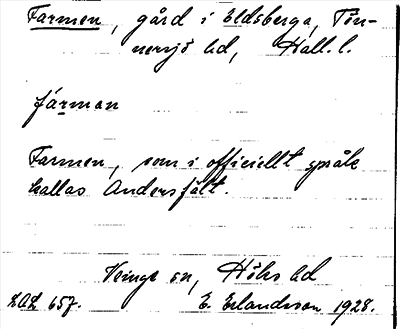 Farmen, gård i Eldsberga, Tön-
nersjö hd, Hall. l.
fárman
Farmen, som i officiellt språk
kallas Andersfält.
Veinge sn, Höks hd
LAL 657. E. Erlandsson 1928.